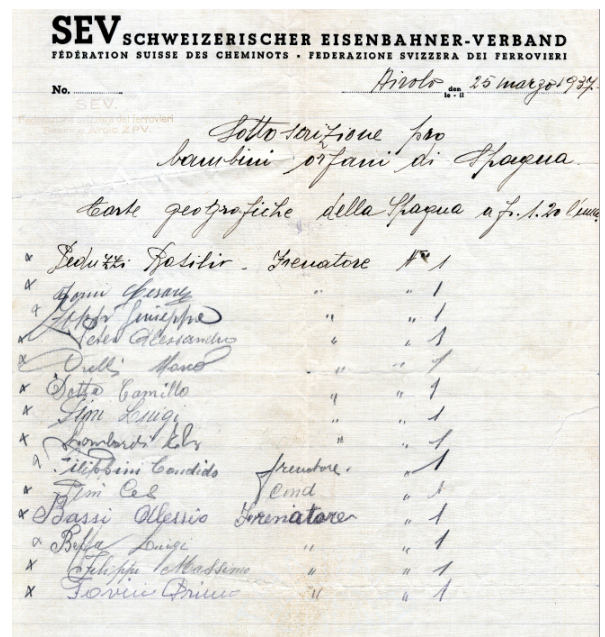 SEV SCHWEIZERISCHER EISENBAHNER-VERBAND
FÉDÉRATION SUISSE DES CHEMINOTS - FEDERAZIONE SVIZZERA DEI FERROVIERI
No. Airolo den le - il 25 marzo 1937.
SEV.
Federazione svizzera dei ferrovieri
Z.P.V.
Sottoscrizione pro
bambini orfani di Spagna.
Carte geografiche della Spagna a fr. 1.20 l'una
x Peduzzi Basilio - Frenatore No 1
x Cesare " " 1
x Giuseppe " " 1
x Peter Alessandro " " 1
x " " 1
x Dotta Camillo " " 1
x Luigi " " 1
x Lombardi " " 1
Filippini Candido frenatore. " 1
x " 1
x Bassi Alessio Frenatore " 1
Luigi " " 1
x Filippi Massimo " " 1
x " " 1